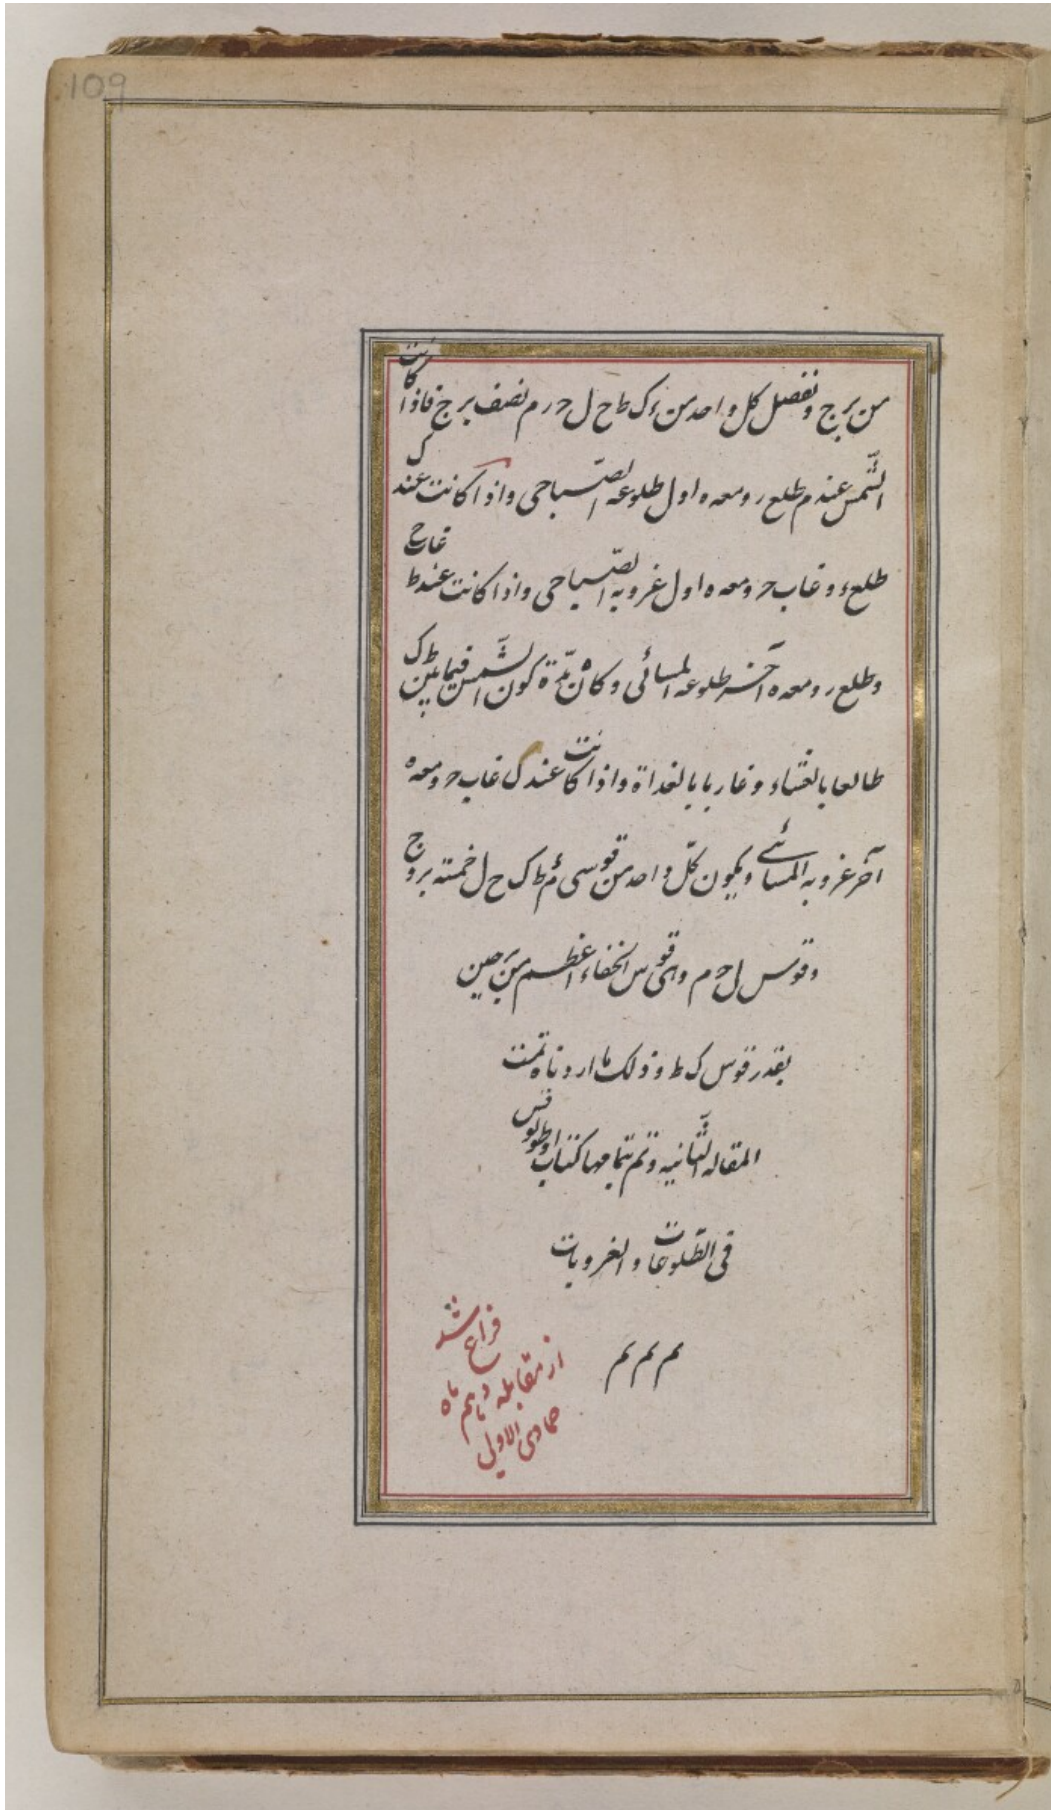 109
من برج ونفصل كل واحد من ءك طح ل ح رم نصف برج فاذا كانت
الشمس عند م طلع ر ومعه ه اول طلوعه الصباحى واذا كانت عند ك
طلع ء وغاب ح ومعه ه اول غروبه الصباحى واذا كانت عند ط غاب ح
وطلع ر ومعه ه آخر طلوعه المسائى وكان مدة كون الشمس فيما بين ط ك
طالعا بالعشاء وغاربا بالغداة واذا كانت عند ل غاب ح ومعه ه
آخر غروبه المسائى ويكون كل واحد من قوسى م ط ك ح ل خمسة بروج
وقوس ل ح م وهى قوس الخفاء اعظم من برجين
بقدر قوس ك ط وذلك ما اردناه تمت
المقاله الثانيه وتم بتمامها كتاب اوطولوقس
فى الطلوعات والغروبات
مم مم مم
فراغ شد
از مقابله
ماه
جمادى الاولى